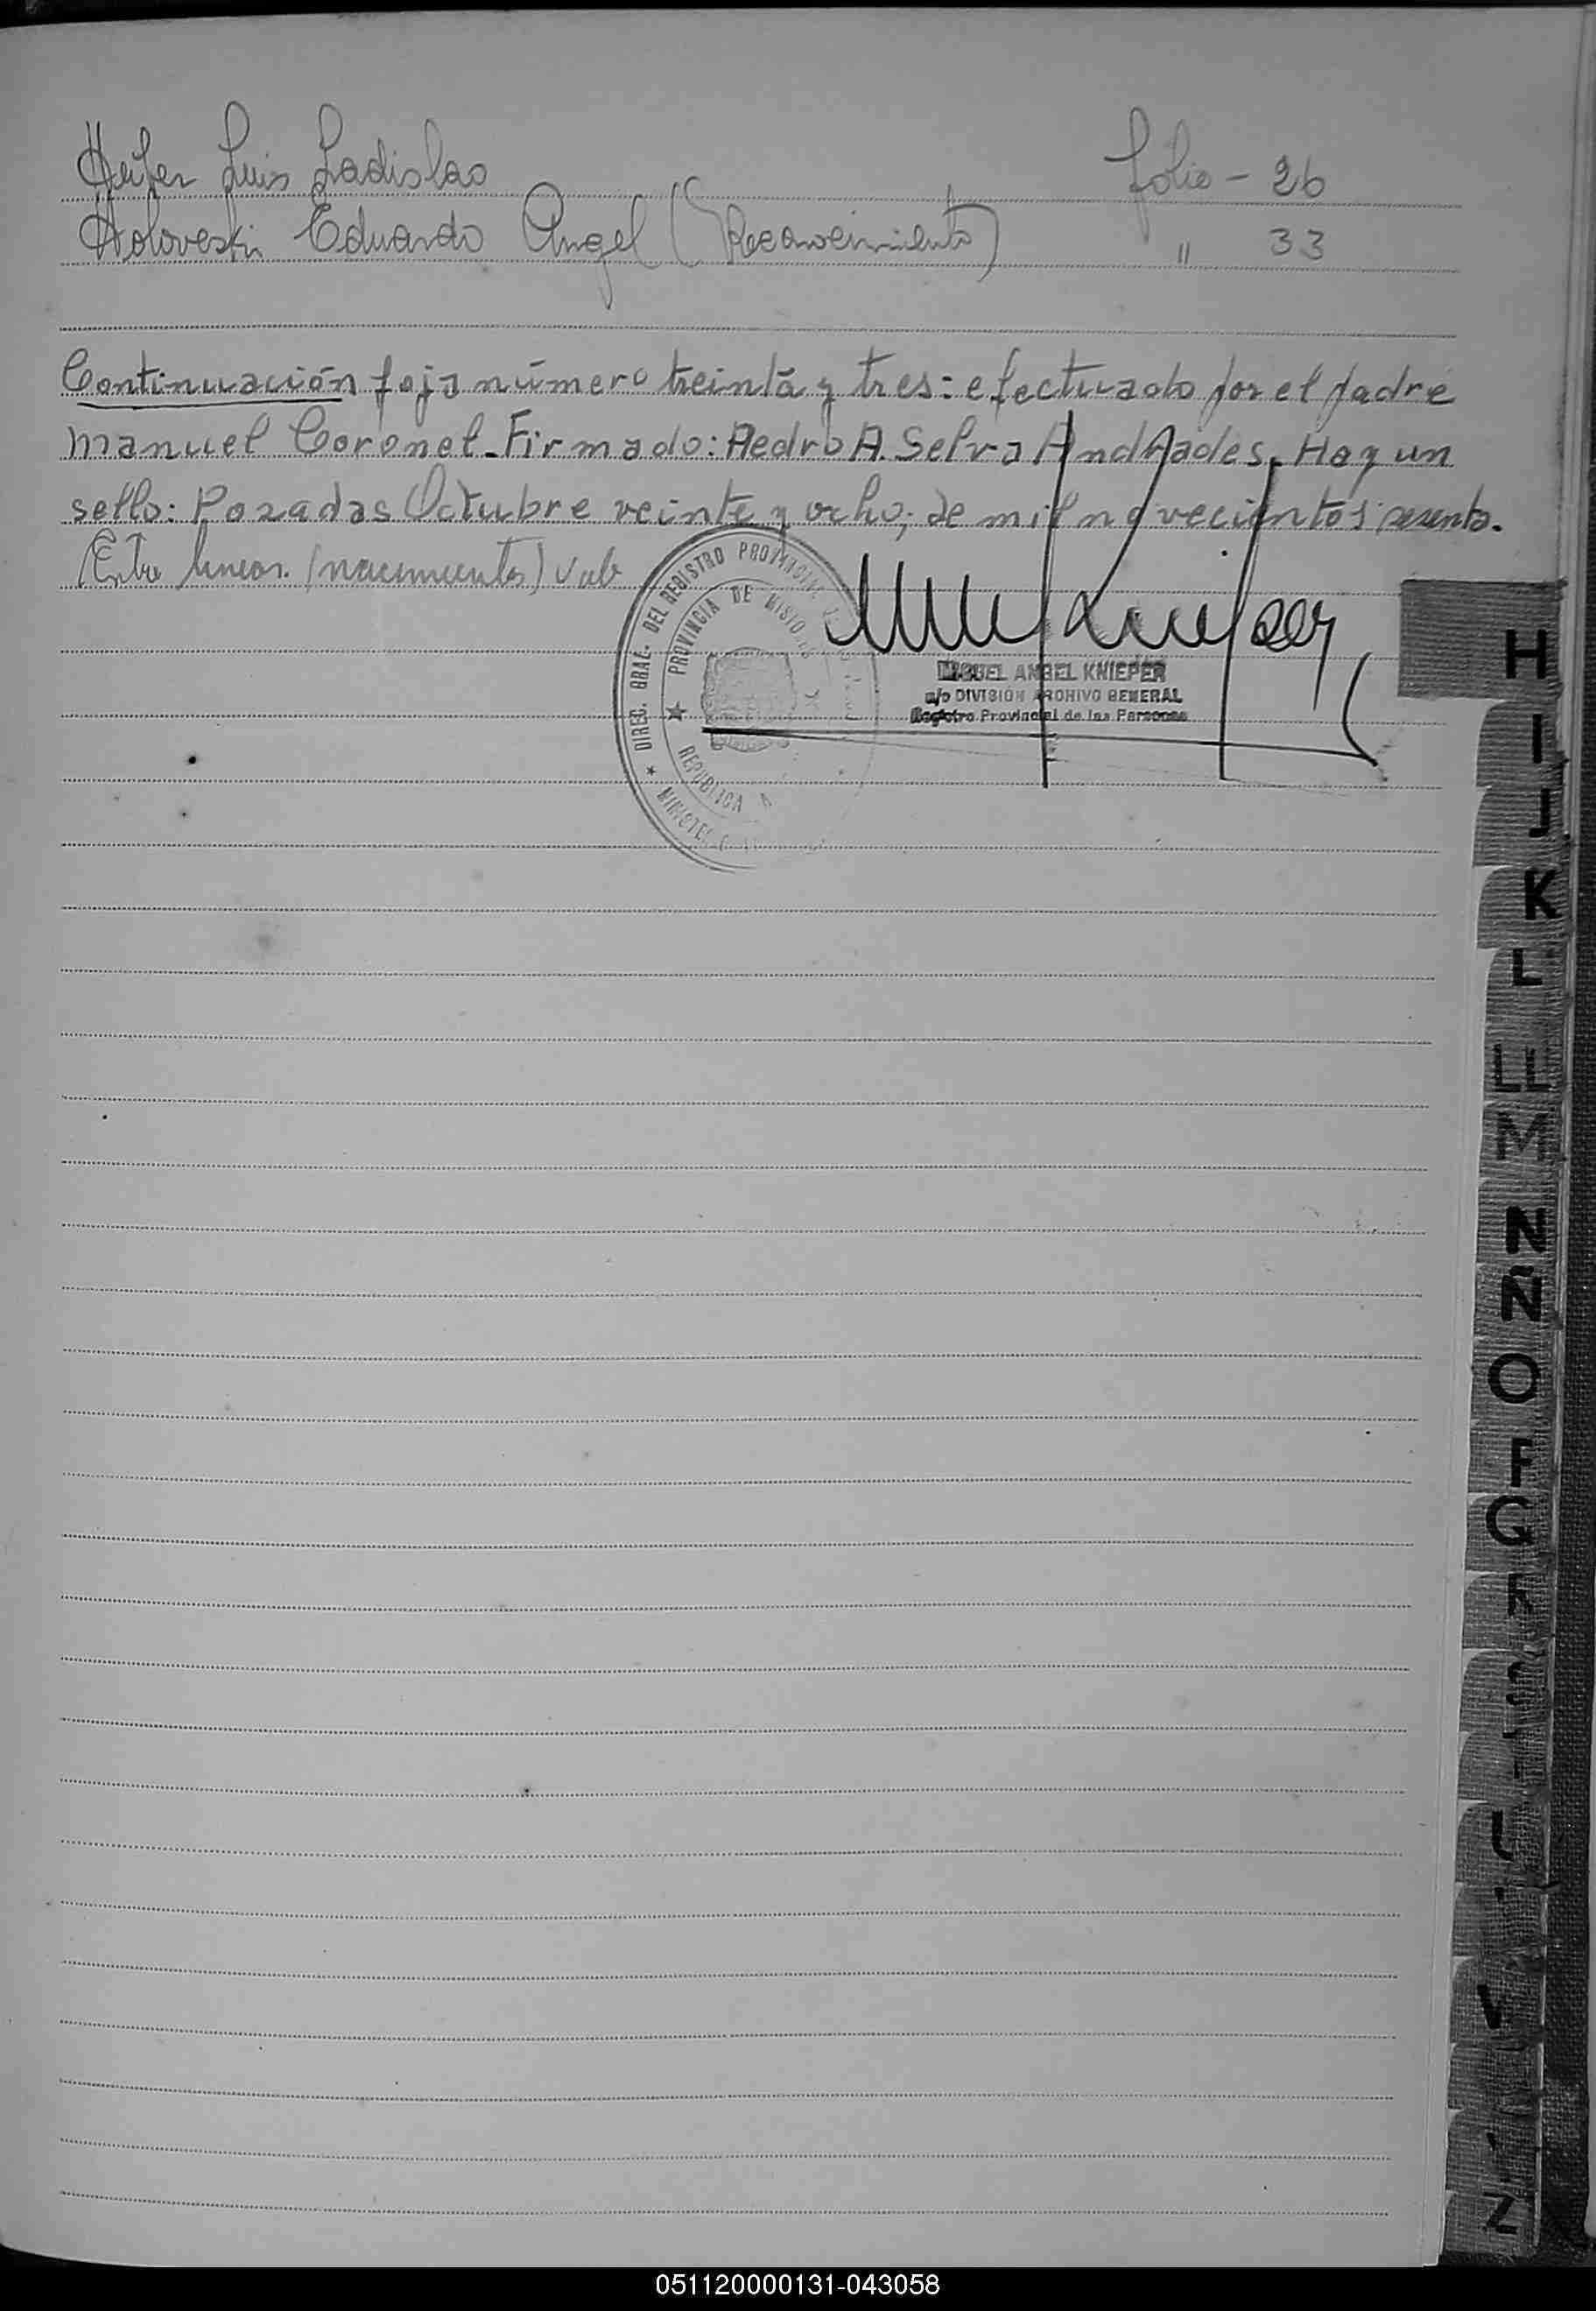 Luis Ladislao folio - 26
Holoveski Eduardo Angel (Reconocimiento) " 33
Continuación foja número treinta y tres: efectuado por el padre
Manuel Coronel. Firmado: Pedro A. Selva Andrades. Hay un
sello: Posadas Octubre veinte y ocho, de mil novecientos sesenta.
Entre lineas. (nacimientos) Vale
DIREC. GRAL. DEL REGISTRO PROVINCIAL
PROVINCIA DE MISIONES
REPUBLICA A
MIGUEL ANGEL KNIEPER
a/c DIVISIÓN ARCHIVO GENERAL
Registro Provincial de las Personas
H
I
J
K
L
LL
M
N
Ñ
O
P
Q
R
S
T
U
V
Z
051120000131-043058